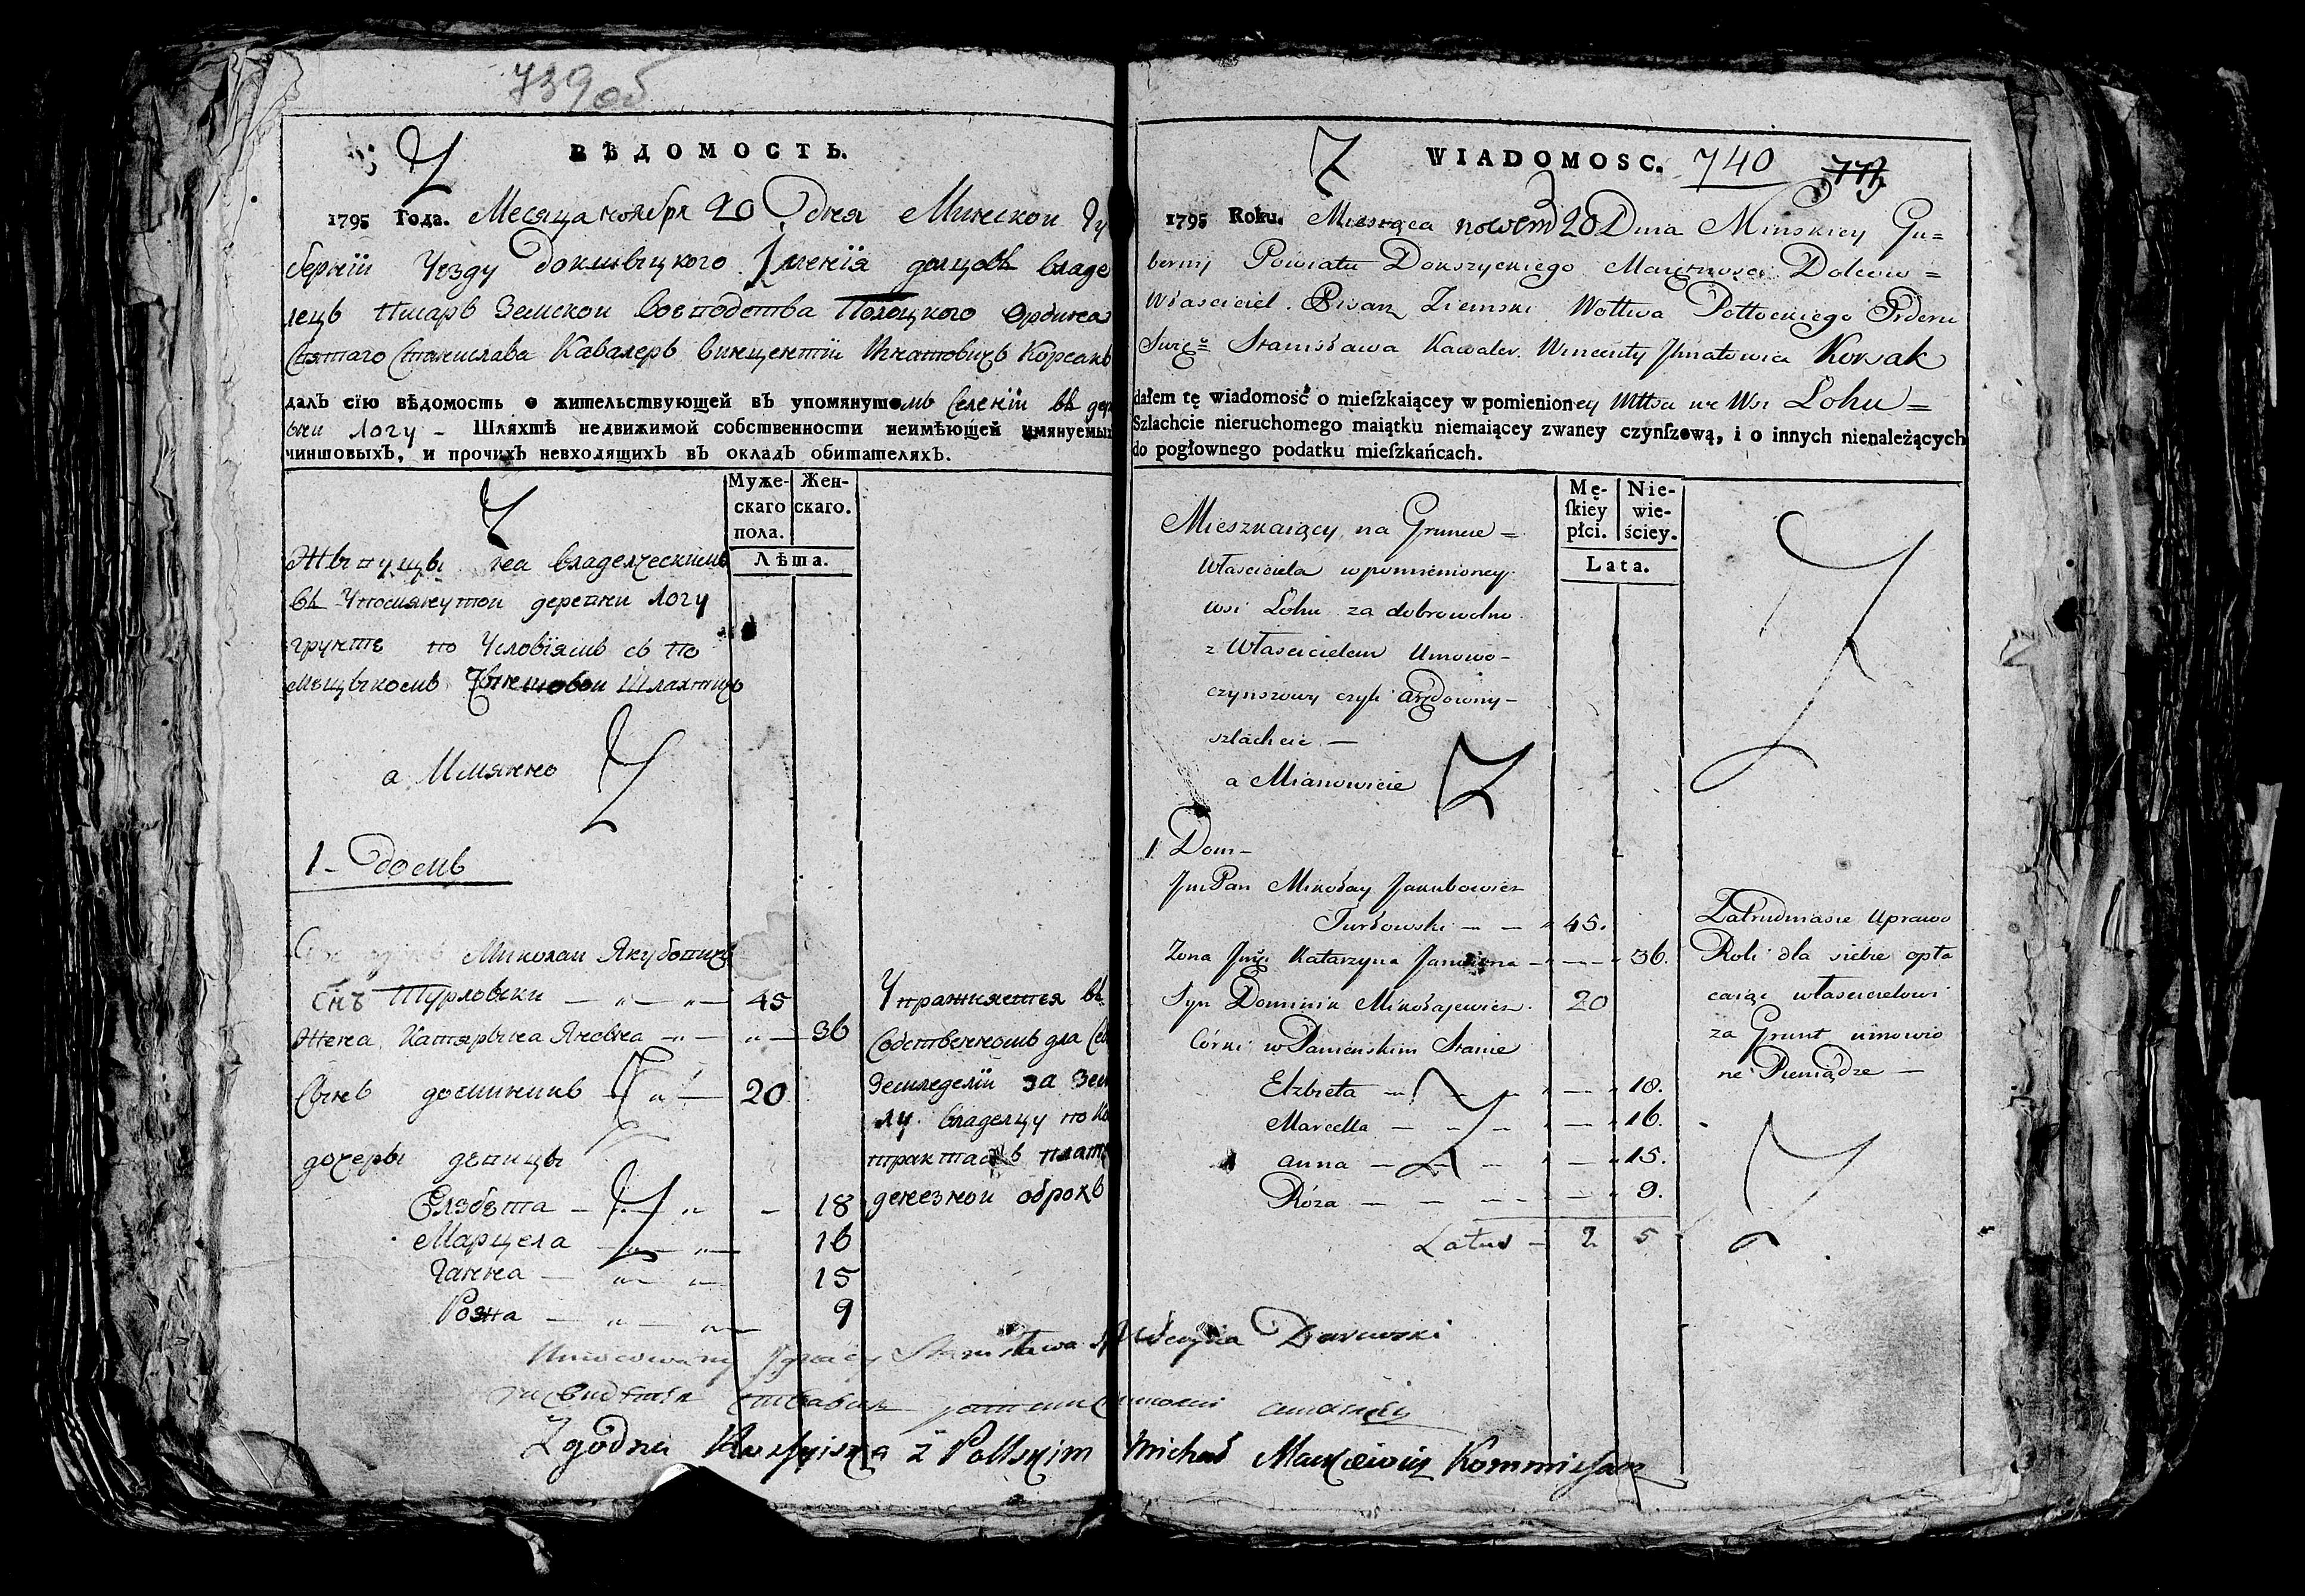 739об
ВѢДОМОСТЬ.
1795 Года. Месяца ноября 20 Дня Минской Гу
бернїи Уезду докшыцкого Іменїя долцовъ владе
лецъ писаръ Земской Воеводства Полоцкого Ордина
Святаго Станислава Кавалеръ Винцентїи Игнатовичъ Корсакъ
далъ сїю вѣдомость о жительствующей въ упомянутомъ Селенїи въ дер
вни Логу – Шляхтѣ недвижимой собственности неимѣющей имянуемы
чиншовыхъ, и прочихъ невходящихъ въ окладъ обитателяхъ.
Муже- Жен-
скаго скаго.
пола.
Лѣта.
Живущы на владелческимъ
въ Упомянутои деревни Логу
грунте по Условїямъ съ по
мещыкомъ Чыншовои Шляхтичъ
а Имянно
1 – домъ
Миколаи Якубовичъ
Снъ Турловски 45
Жена Катарына Яновна 36
Сынъ доминикъ 20
дочеры девицы
Елзбета 18
Марцела 16
Ганна 15
Рожа 9
Упражняется въ
Собственномъ для Се
Земледелїи за Зем
лу владелцу по Ко
трактамъ плат
денежнои оброкъ
WIADOMOSC. 740
1795 Roku. Miesiąca novem 20 Dnia Minskiey Gu=
bernij Powiatu Dokszyckiego Maiętnosci Dolcow =
Własciciel Pisarz Ziemski Wottwa Połłockiego Orderu
Swię Stanisława Kawaler Wincenty Jhnatowicz Korsak
dałem tę wiadomość o mieſzkaiącey w pomienioney Mttsci we Wsi Lohu =
Szlachcie nieruchomego maiątku niemaiącey zwaney czynſzową, i o innych nienależących
do pogłownego podatku mieſzkańcach.
Mę- Nie-
ſkiey wie-
płci. ściey.
Lata.
Mieszkaiący na Gruncie =
Własciciela w pomienioney
wsi Lohu za dobrowolno
z Własciciełem Umowo –
czynszowy czyli arędowny –
szlachcic –
a Mianowicie
1 Dom –
Jm Pan Mikołay Jakubowicz
Turłowski 45.
Zona Katarzyna Janowna 36.
Syn Dominik Mikołajewicz 20
Córki w Panienskim Stanie
Elzbieta 18.
Marcella 16.
anna 15.
Róza 9.
Latus 2 5
Zatrudniasie Uprawo
Roli dla siebie opła
caiąc własciciełowi
za Grunt umowio
ne Pieniądze –
Umocowany Ignacy Stanisława Darewski
Zgodna Kossyiska z Polskim Michał Mackiewicz Kommisarz